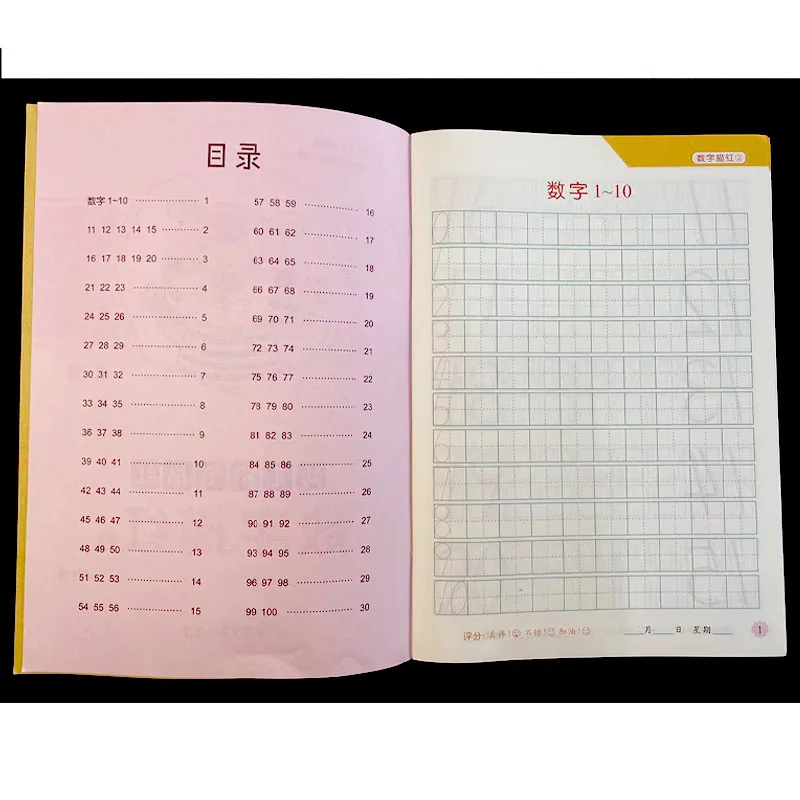 目录
数字 1~10 ………………… 1
11 12 13 14 15 …………… 2
16 17 18 19 20 …………… 3
21 22 23 ………………… 4
24 25 26 ………………… 5
27 28 29 ………………… 6
30 31 32 ………………… 7
33 34 35 ………………… 8
36 37 38 ………………… 9
39 40 41 ………………… 10
42 43 44 ………………… 11
45 46 47 ………………… 12
48 49 50 ………………… 13
51 52 53 ………………… 14
54 55 56 ………………… 15
57 58 59 ………………… 16
60 61 62 ………………… 17
63 64 65 ………………… 18
66 67 68 ………………… 19
69 70 71 ………………… 20
72 73 74 ………………… 21
75 76 77 ………………… 22
78 79 80 ………………… 23
81 82 83 ………………… 24
84 85 86 ………………… 25
87 88 89 ………………… 26
90 91 92 ………………… 27
93 94 95 ………………… 28
96 97 98 ………………… 29
99 100 ………………… 30
数字描红②
数字 1~10
0
1
2
3
4
5
6
7
8
9
10
评分:真棒! 不错! 加油!
____月____日 星期____
1